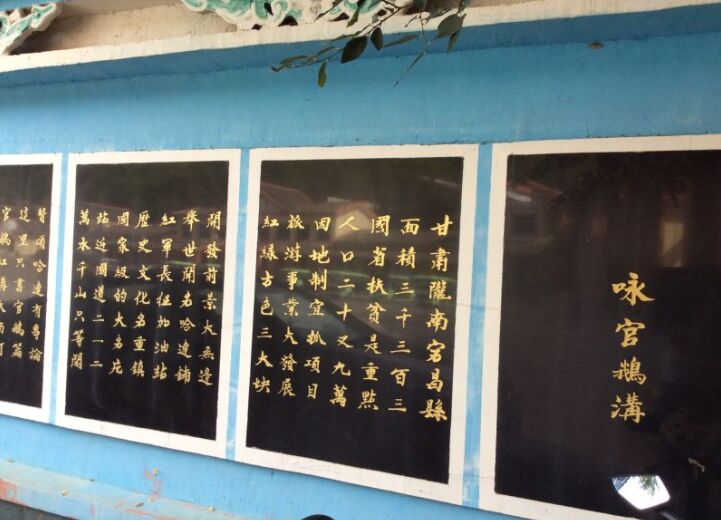 咏官鵝溝
甘肅隴南宕昌縣
面積三千三百三
國省扶貧是重點
人口二十又九萬
因地制宜抓項目
旅游事業大發展
紅綠古色三大块
開發前景大無邊
舉世聞名哈達鋪
紅軍長征加油站
歷史文化名重鎮
國家級的大名片
近國道二一二
萬水千山只等閑
頌哈達有專論
這里只書官鵝篇
官鵝